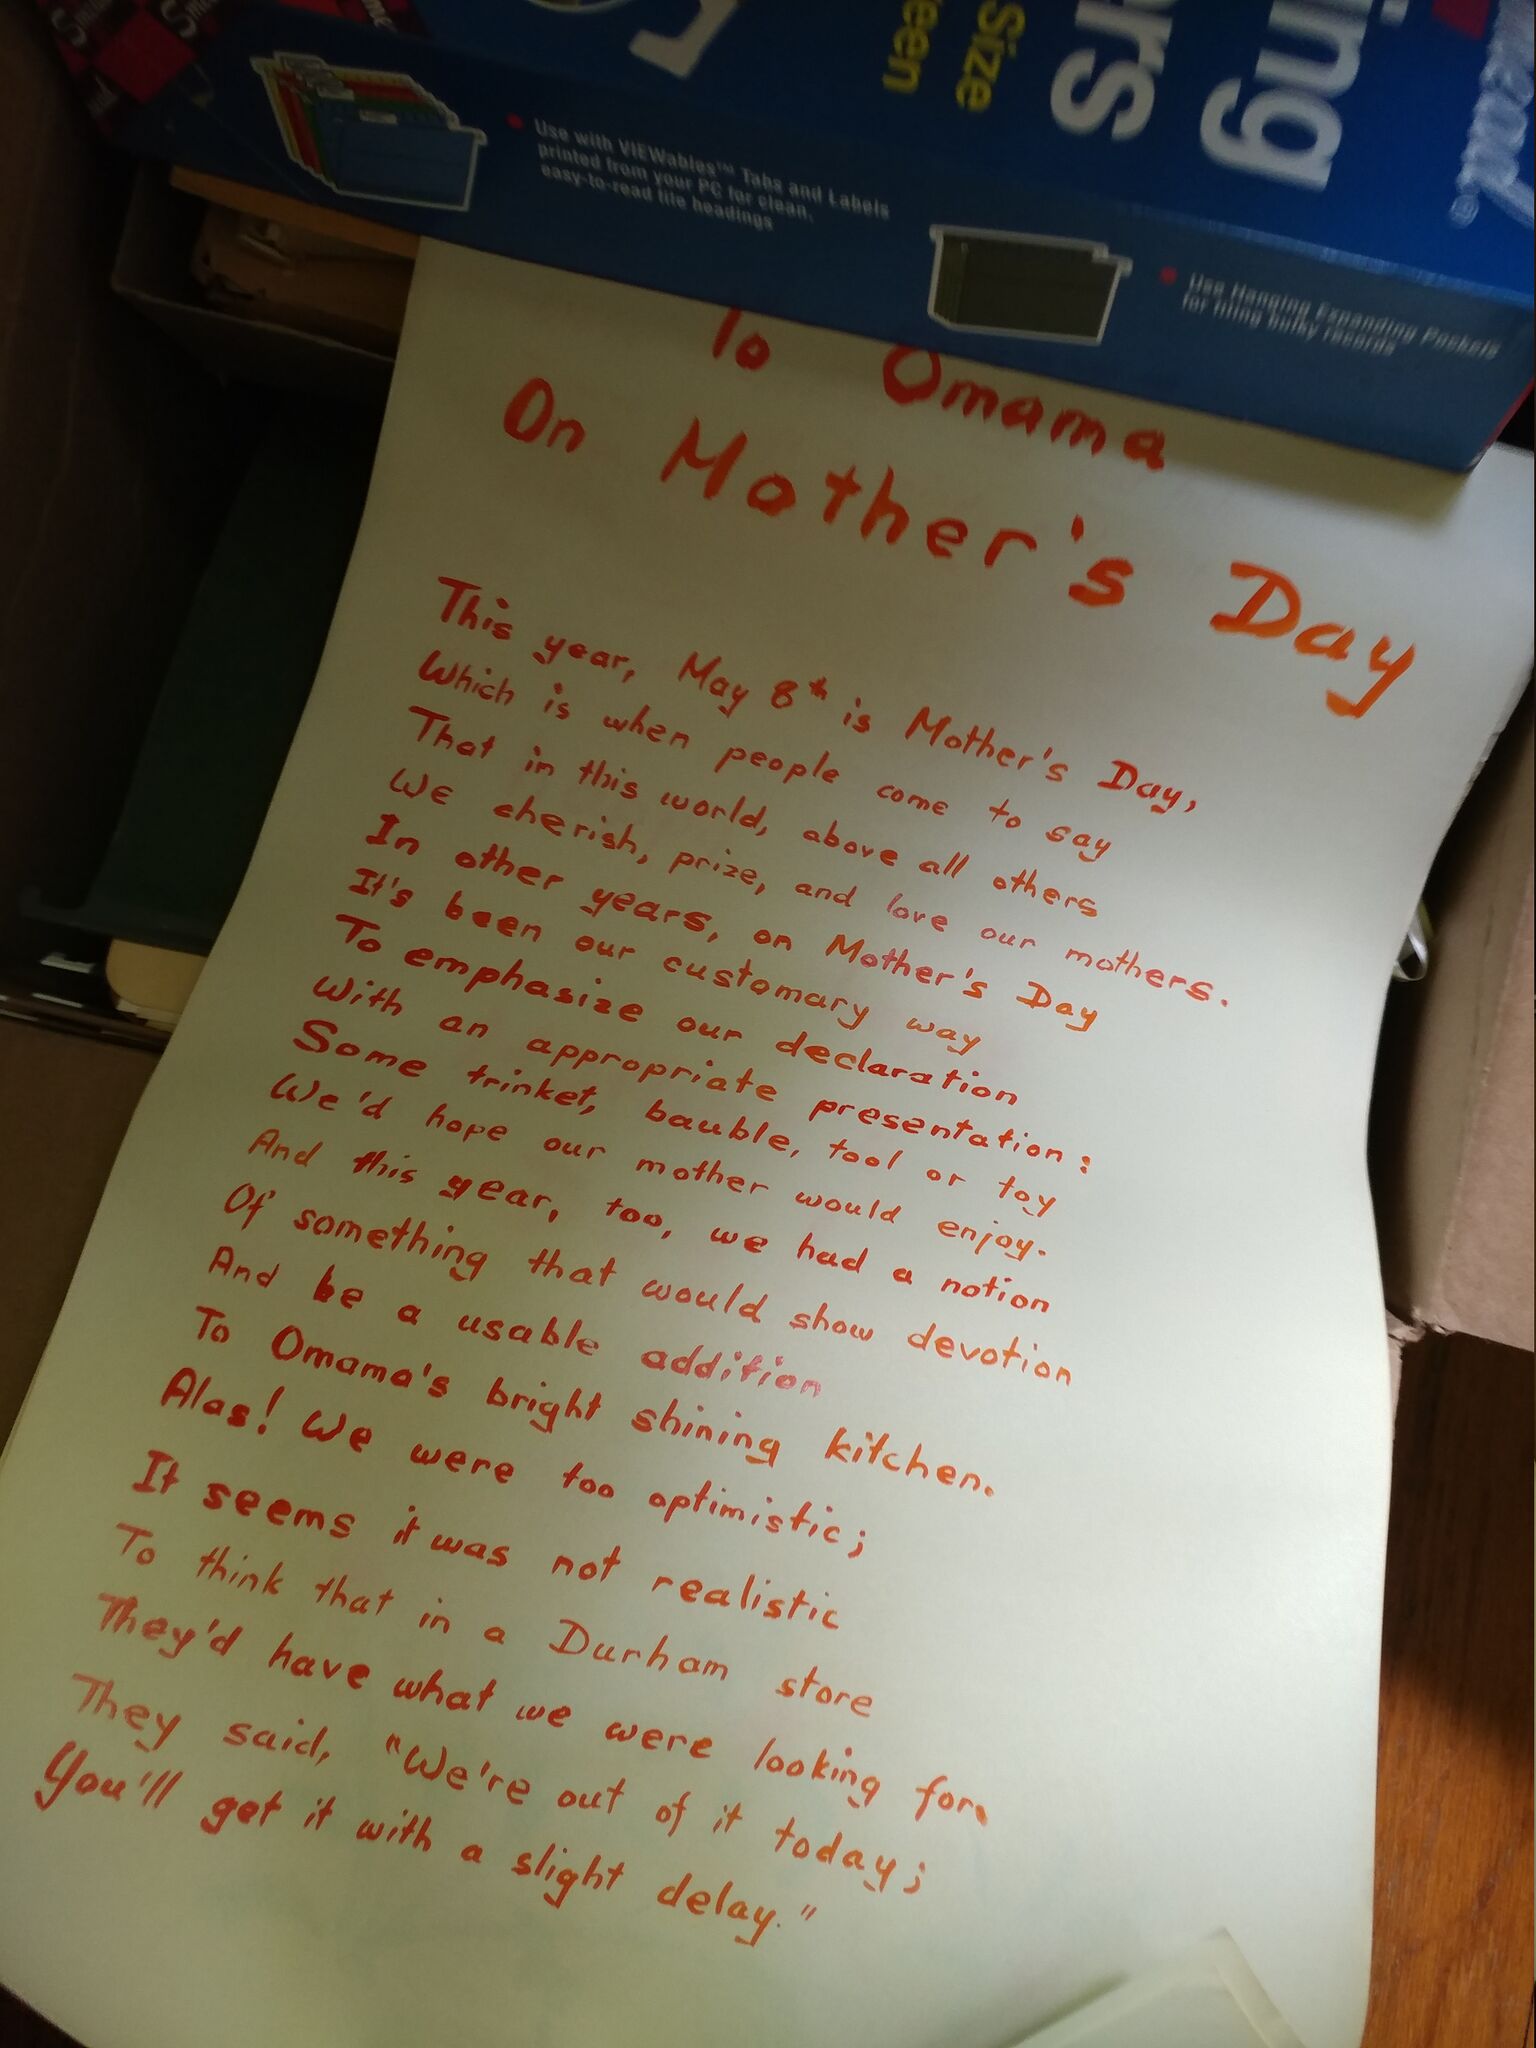 ing
ers
Size
een
Use with VIEWables™ Tabs and Labels
printed from your PC for clean,
easy-to-read file headings
Use Hanging Expanding Pockets
for filing bulky records
To Omama
On Mother's Day
This year, May 8th is Mother's Day,
Which is when people come to say
That in this world, above all others
We cherish, prize, and love our mothers.
In other years, on Mother's Day
It's been our customary way
To emphasize our declaration
With an appropriate presentation:
Some trinket, bauble, tool or toy
We'd hope our mother would enjoy.
And this year, too, we had a notion
Of something that would show devotion
And be a usable addition
To Omama's bright shining kitchen.
Alas! We were too optimistic;
It seems it was not realistic
To think that in a Durham store
They'd have what we were looking for.
They said, "We're out of it today;
You'll get it with a slight delay."